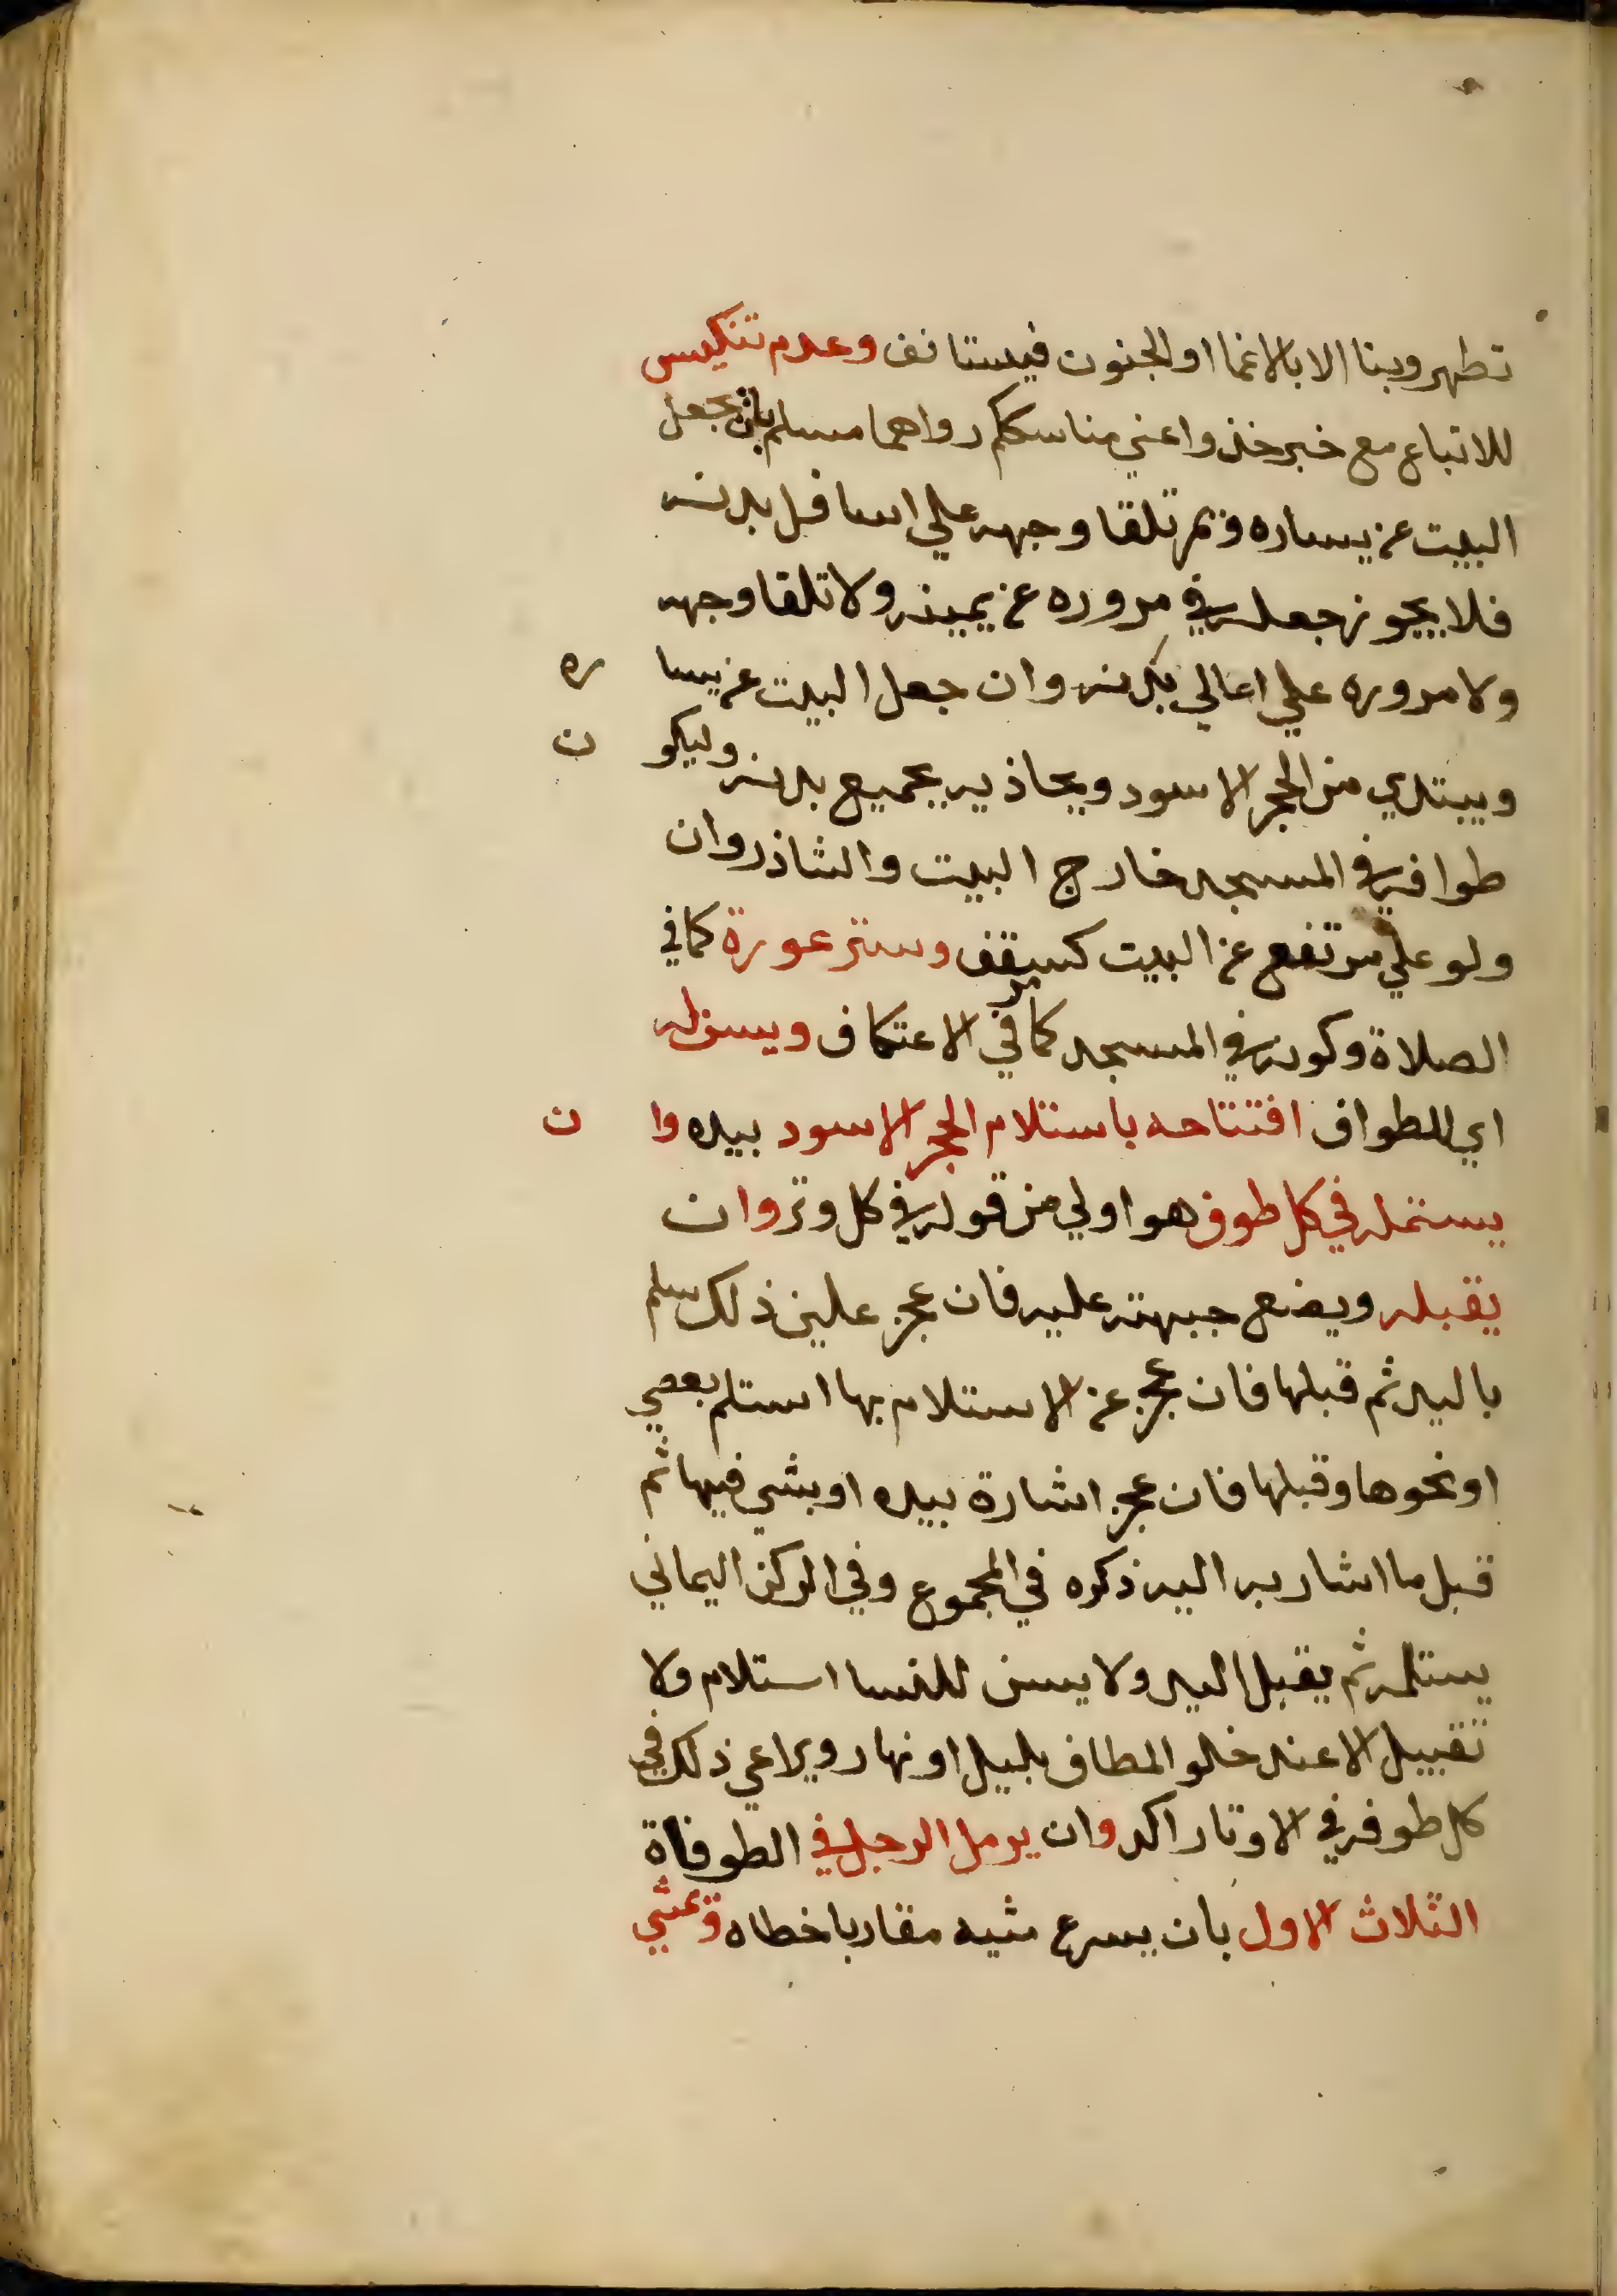 تطهر وبنا الا بالاغما او الجنون فيستانف وعدم تنكيس
للاتباع مع خبر خذوا عني مناسككم رواهما مسلم بان يجعل
البيت عن يساره ويمر تلقا وجهه علي اسافل بدنه
فلا يجوز جعله في مروره عن يمينه ولا تلقا وجهه
ولا مروره علي اعالي بدنه وان جعل البيت عن يساره
ويبتدي من الحجر الاسود ويحاذيه بجميع بدنه وليكون
طوافه في المسجد خارج البيت والشاذروان
ولو علي مرتفع عن البيت كسقف وستر عورة كما في
الصلاة وكونه في المسجد كما مر في الاعتكاف ويسن له
اي للطواف افتتاحه باستلام الحجر الاسود بيده وان
يستلمه في كل طوف هو اولي من قوله في كل وتر وان
يقبله ويضع جبهته عليه فان عجز علين ذلك سلم
باليد ثم قبلها فان عجز عن الاستلام بها استلم بعصي
او نحوها وقبلها فان عجز اشارة بيده او بشي فيها ثم
قبل ما اشار به اليه ذكره في المجموع وفي الركن اليماني
يستلمه ثم يقبل اليد ولا يسن للنسا استلام ولا
تقبيل الا عند خلو المطاف بليل او نهار ويراعي ذلك في
كل طوفه في الاوتار اكد وان يرمل الرجل في الطوفاة
الثلاث الاول بان يسرع مشيه مقاربا خطاه ويمشي